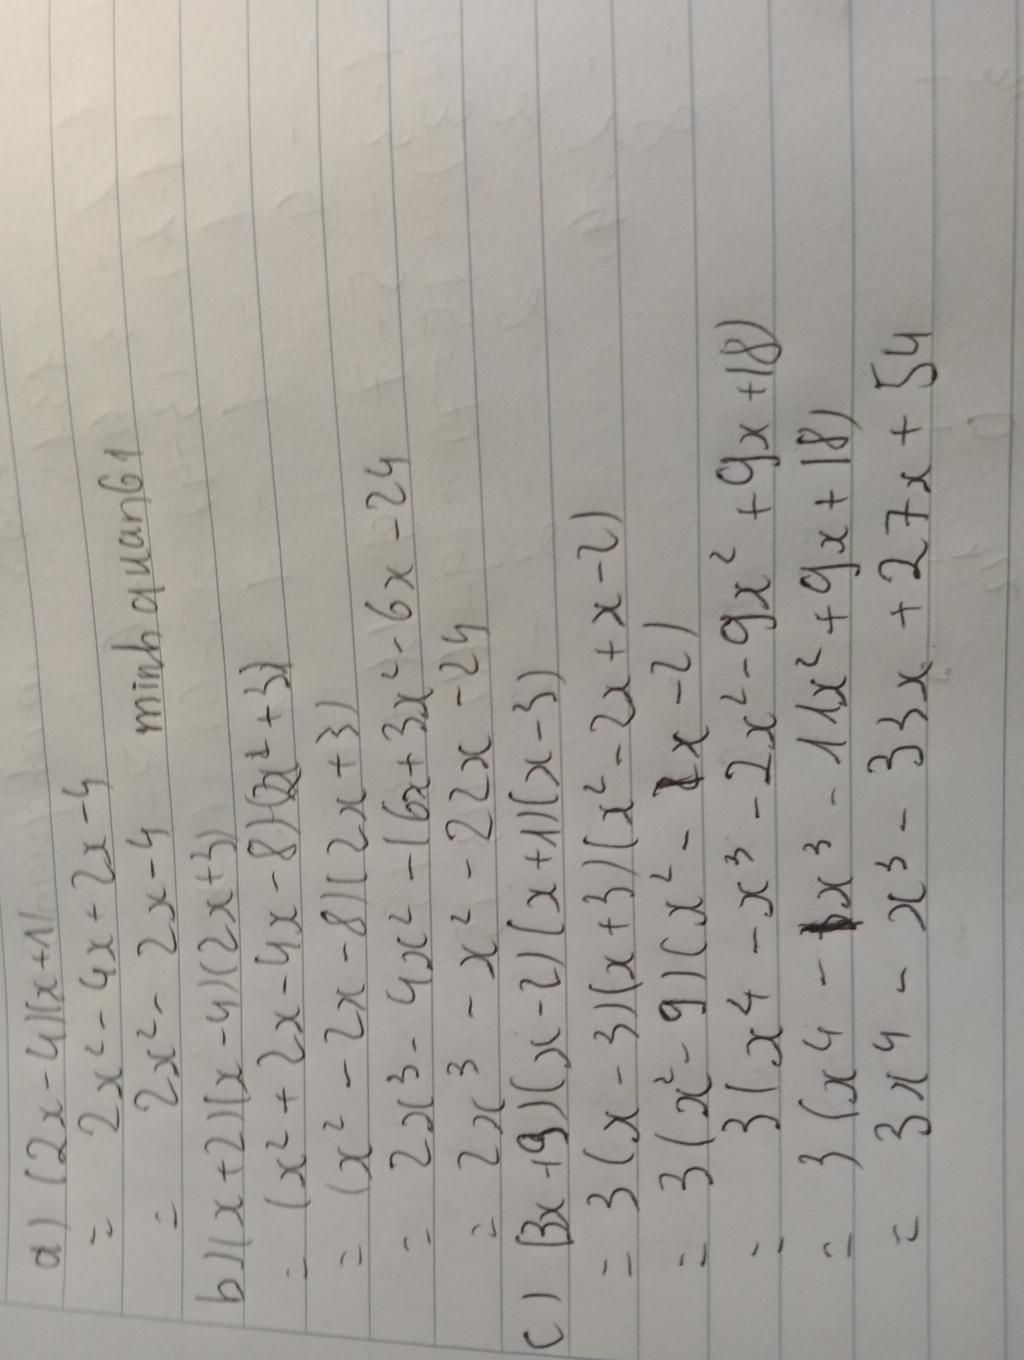 a) (2x-4)(x+1)
= 2x² - 4x + 2x - 4
= 2x² - 2x - 4 minhquan61
b) (x+2)(x-4)(2x+3)
= (x² + 2x - 4x - 8)(2x²+3)
= (x² - 2x - 8)(2x+3)
= 2x³ - 4x² - 16x + 3x² - 6x - 24
= 2x³ - x² - 22x - 24
c) (3x+9)(x-2)(x+1)(x-3)
= 3(x-3)(x+3)(x² - 2x + x - 2)
= 3(x² - 9)(x² - x - 2)
= 3(x⁴ - x³ - 2x² - 9x² + 9x + 18)
= 3(x⁴ - x³ - 11x² + 9x + 18)
= 3x⁴ - x³ - 33x + 27x + 54